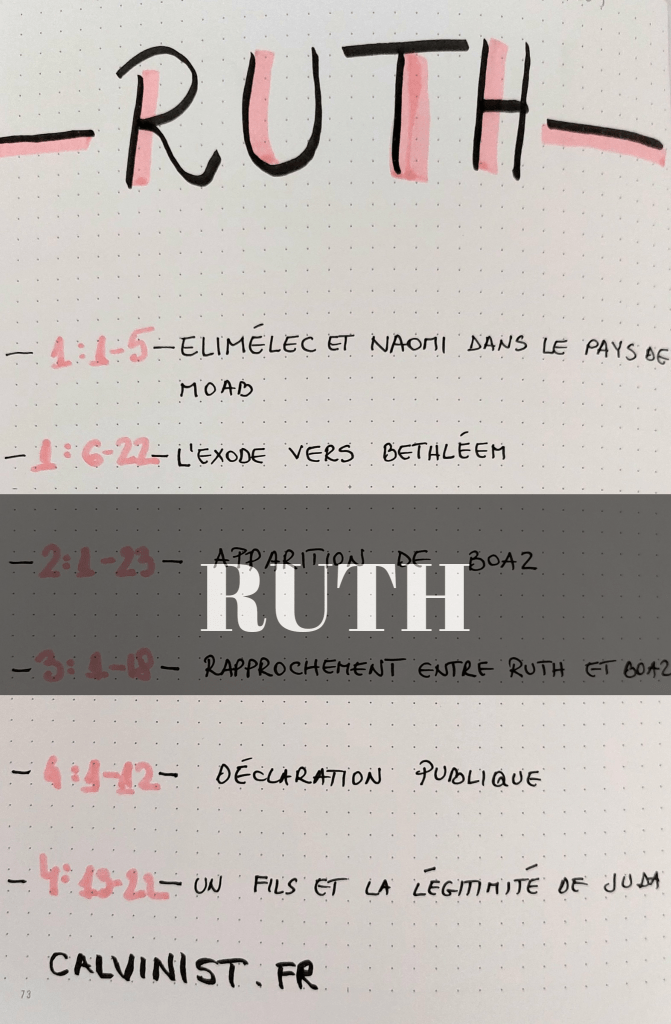 RUTH
— 1:1-5 — ELIMÉLEC ET NAOMI DANS LE PAYS DE
MOAB
— 1:6-22 — L'EXODE VERS BETHLÉEM
— 2:1-23 — APPARITION DE BOAZ
RUTH
— 3:1-18 — RAPPROCHEMENT ENTRE RUTH ET BOAZ
— 4:1-12 — DÉCLARATION PUBLIQUE
— 4:13-22 — UN FILS ET LA LÉGITIMITÉ DE JUDA
CALVINIST.FR
73